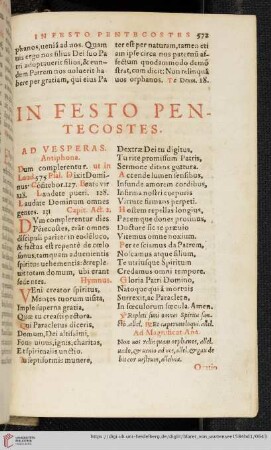 IN FESTO PENTECOSTES 572
phanos, veniā ad vos. Quam
uis ergo nos filius Dei suo Pa
tri adoptauerit filios, & eun-
dem Patrem nos voluerit habe
re per gratiam, qui eius Pa
ter est per naturam, tamen eti
am ipse circa nos paternū af-
fectum quodammodo demō
strat, cum dicit; Non relinquā
vos orphanos. Te Deum. 18.
IN FESTO PEN-
TECOSTES.
AD VESPERAS.
Antiphona.
Dum complerentur. ut in
Laud. 575 Psal. Dixit Domi-
nus Cōfitebor. 127. Beatus vir
128. Laudate pueri. 128.
Laudate Dominum omnes
gentes. 131 Capit. Act. 2.
DVm complerentur dies
Pētecostes, erāt omnes
discipuli pariter in eodē loco,
& factus est repentè de cœlo
sonus, tamquam aduenientis
spiritus vehementis: & reple-
uit totam domum, ubi erant
sedentes. Hymnus.
VEni creator spiritus,
Mentes tuorum visita,
Imple superna gratia,
Quæ tu creasti pectora.
Qui Paracletus diceris,
Donum, Dei altissimi,
Fons viuus, ignis, charitas,
Et spiritualis unctio.
Tu septiformis munere,
Dextræ Dei tu digitus,
Tu rite promissum Patris,
Sermone ditans guttura.
Accende lumen sensibus,
Infunde amorem cordibus,
Infirma nostri corporis
Virtute firmans perpeti.
Hostem repellas longius,
Pacemque dones protinus,
Ductore sic te præuio
Vitemus omne noxium.
Per te sciamus da Patrem,
Noscamus atque filium,
Te utriusque Spiritum
Credamus omni tempore.
Gloria Patri Domino,
Natoque qui à mortuis
Surrexit, ac Paracleto,
In sæculorum sæcula. Amen.
Ad Magnificat Ant.
Non vos relinquam orphanos, allel.